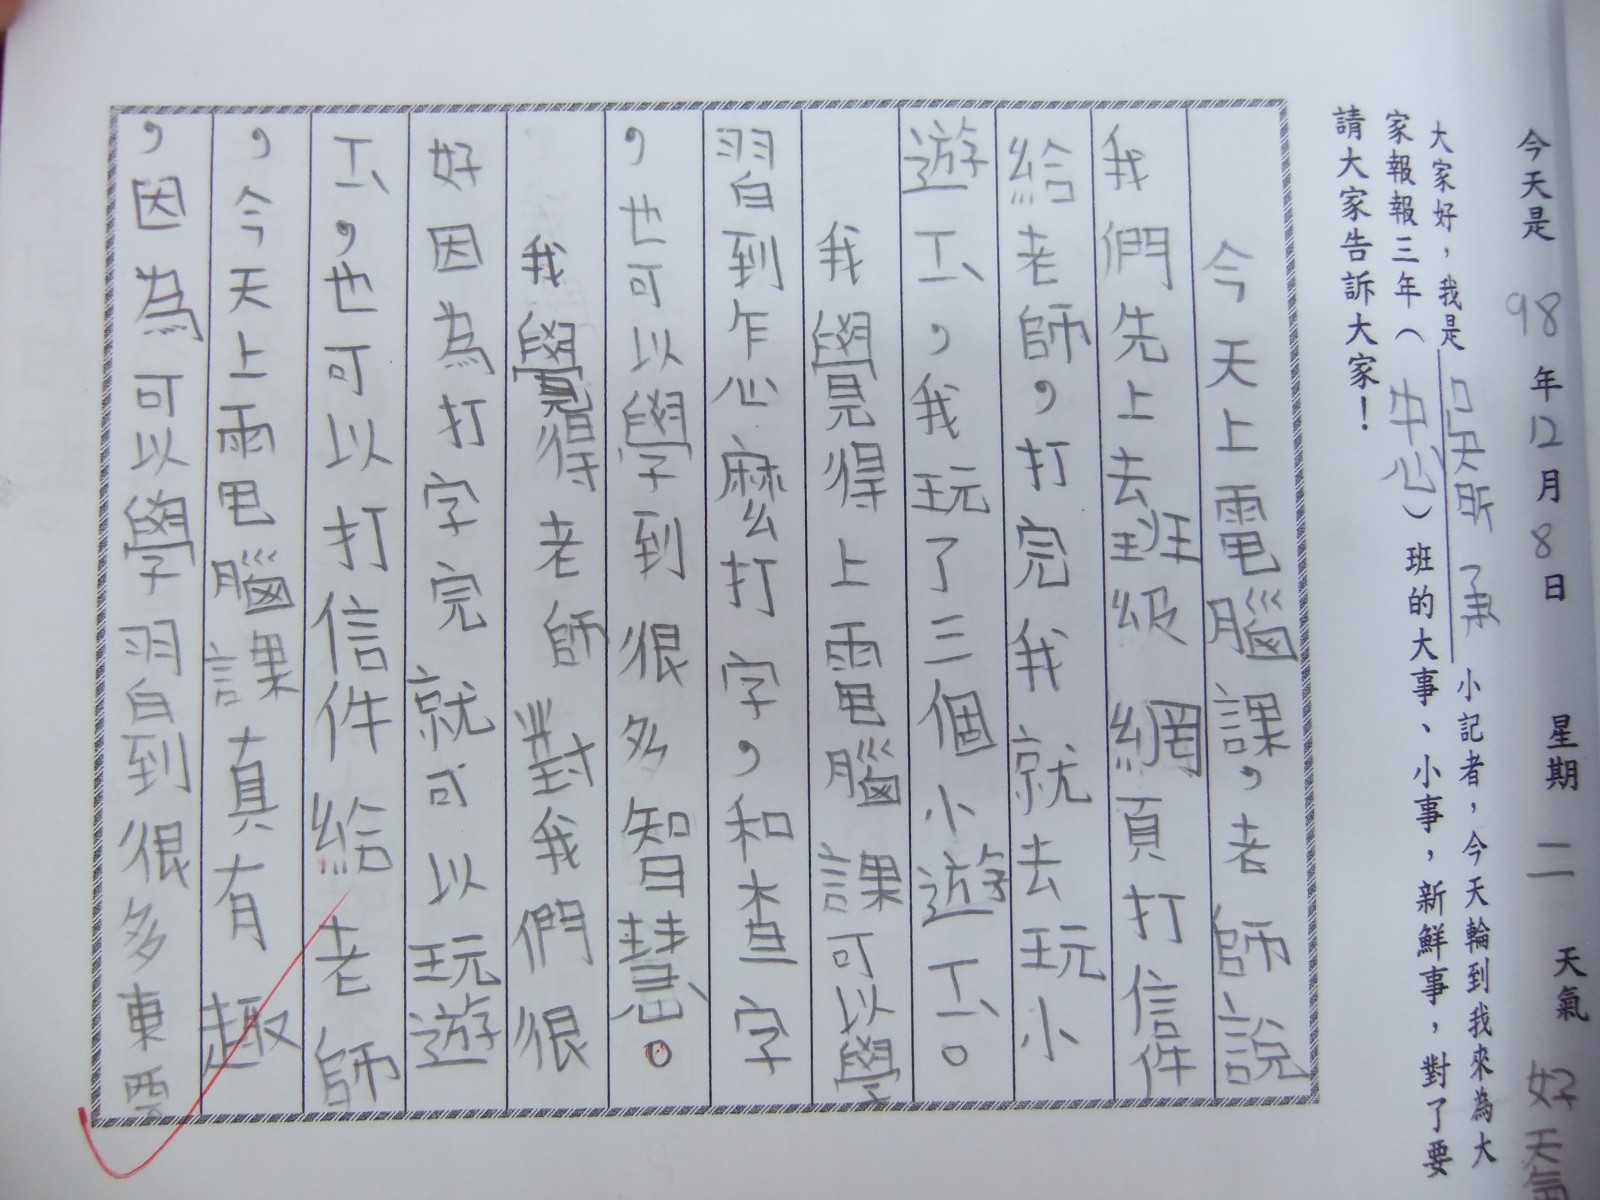 今天是 98 年 12 月 8 日 星期 二 天氣 好天氣
大家好，我是吳昕承小記者，今天輪到我來為大
家報報三年（忠）班的大事、小事，新鮮事，對了要
請大家告訴大家！
今天上電腦課，老師說
我們先上去班級網頁打信件
給老師，打完我就去玩小
遊ㄒㄧˋ，我玩了三個小遊ㄒㄧˋ。
我覺得上電腦課可以學
習到怎麼打字，和查字
，也可以學到很多智慧。
我覺得老師對我們很
好因為打字完就可以玩遊
ㄒㄧˋ，也可以打信件給老師
，今天上電腦課真有趣
，因為可以學習到很多東西